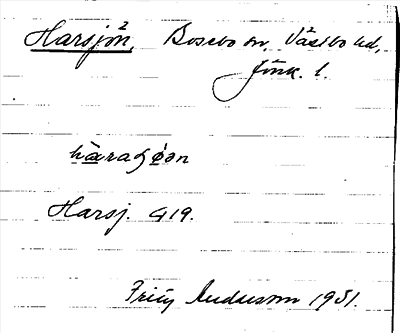 Harsjön, Bosebo sn, Västbo hd,
Jönk. l.
hæraʃøən
Harsj. G19.
Fritz Andersson 1931.